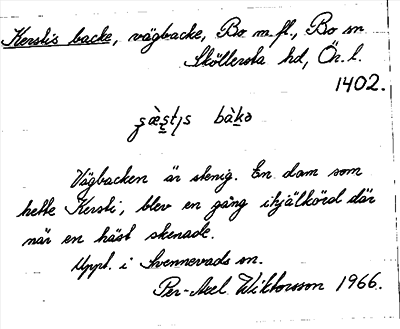 Kerstis backe, vägbacke, Bo m.fl., Bo sn
Sköllersta hd, Ör. l.
1402.
bàkə
Vägbacken är stenig. En dam som
hette Kersti, blev en gång ihjälkörd där
när en häst skenade.
Uppl. i Svennevads sn.
Per-Axel Wiktorsson 1966.